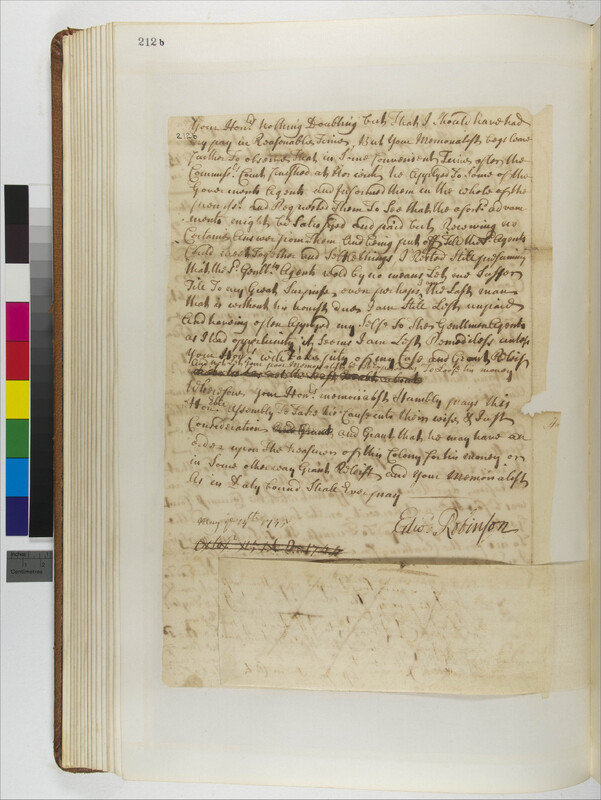 212b
212b
Your Honrs nothing Doubting but that I Should have had
my pay in Reasonable Time, But Your Memorialist begs leave
further to observe, That in Some Convenient Time after the
Commissrs Court finished at Norwich he Applyed To Some of the
Governments Agents and Informed them in the whole of the
premises and Requested Them To See that the aforesd
ments might be Satisfyed and paid but Receiving no
Certain Answer from Them And being put off Till the sd Agents
Could meet Together and Settle things I Rested Still presuming
that the sd Gentlmn Agents would by no means Let me Suffer
Till To my Great Surprise, even perhaps, the Last man
that is without his honest dues I am Still Left unpaid
And having often Applyed my Self To Those Gentlemen Agents
as I had opportunity it Seems I am Left Remediless unless
Your Honrs will Take pity of my Case and Grant Relief
and not let your poor Memorialist To Loose his money
Wherefore Your Honrs memorialist Humbly prays this
Honble Assembly To Take his Case into their wise & Just
Consideration and Grant and Grant that he may have an
order upon the Treasurer of this Colony for his money or
in Some other way Grant Relief and Your Memorialist
As in Duty bound Shall Ever pray
May ye 14th 1745
Edwd Robinson